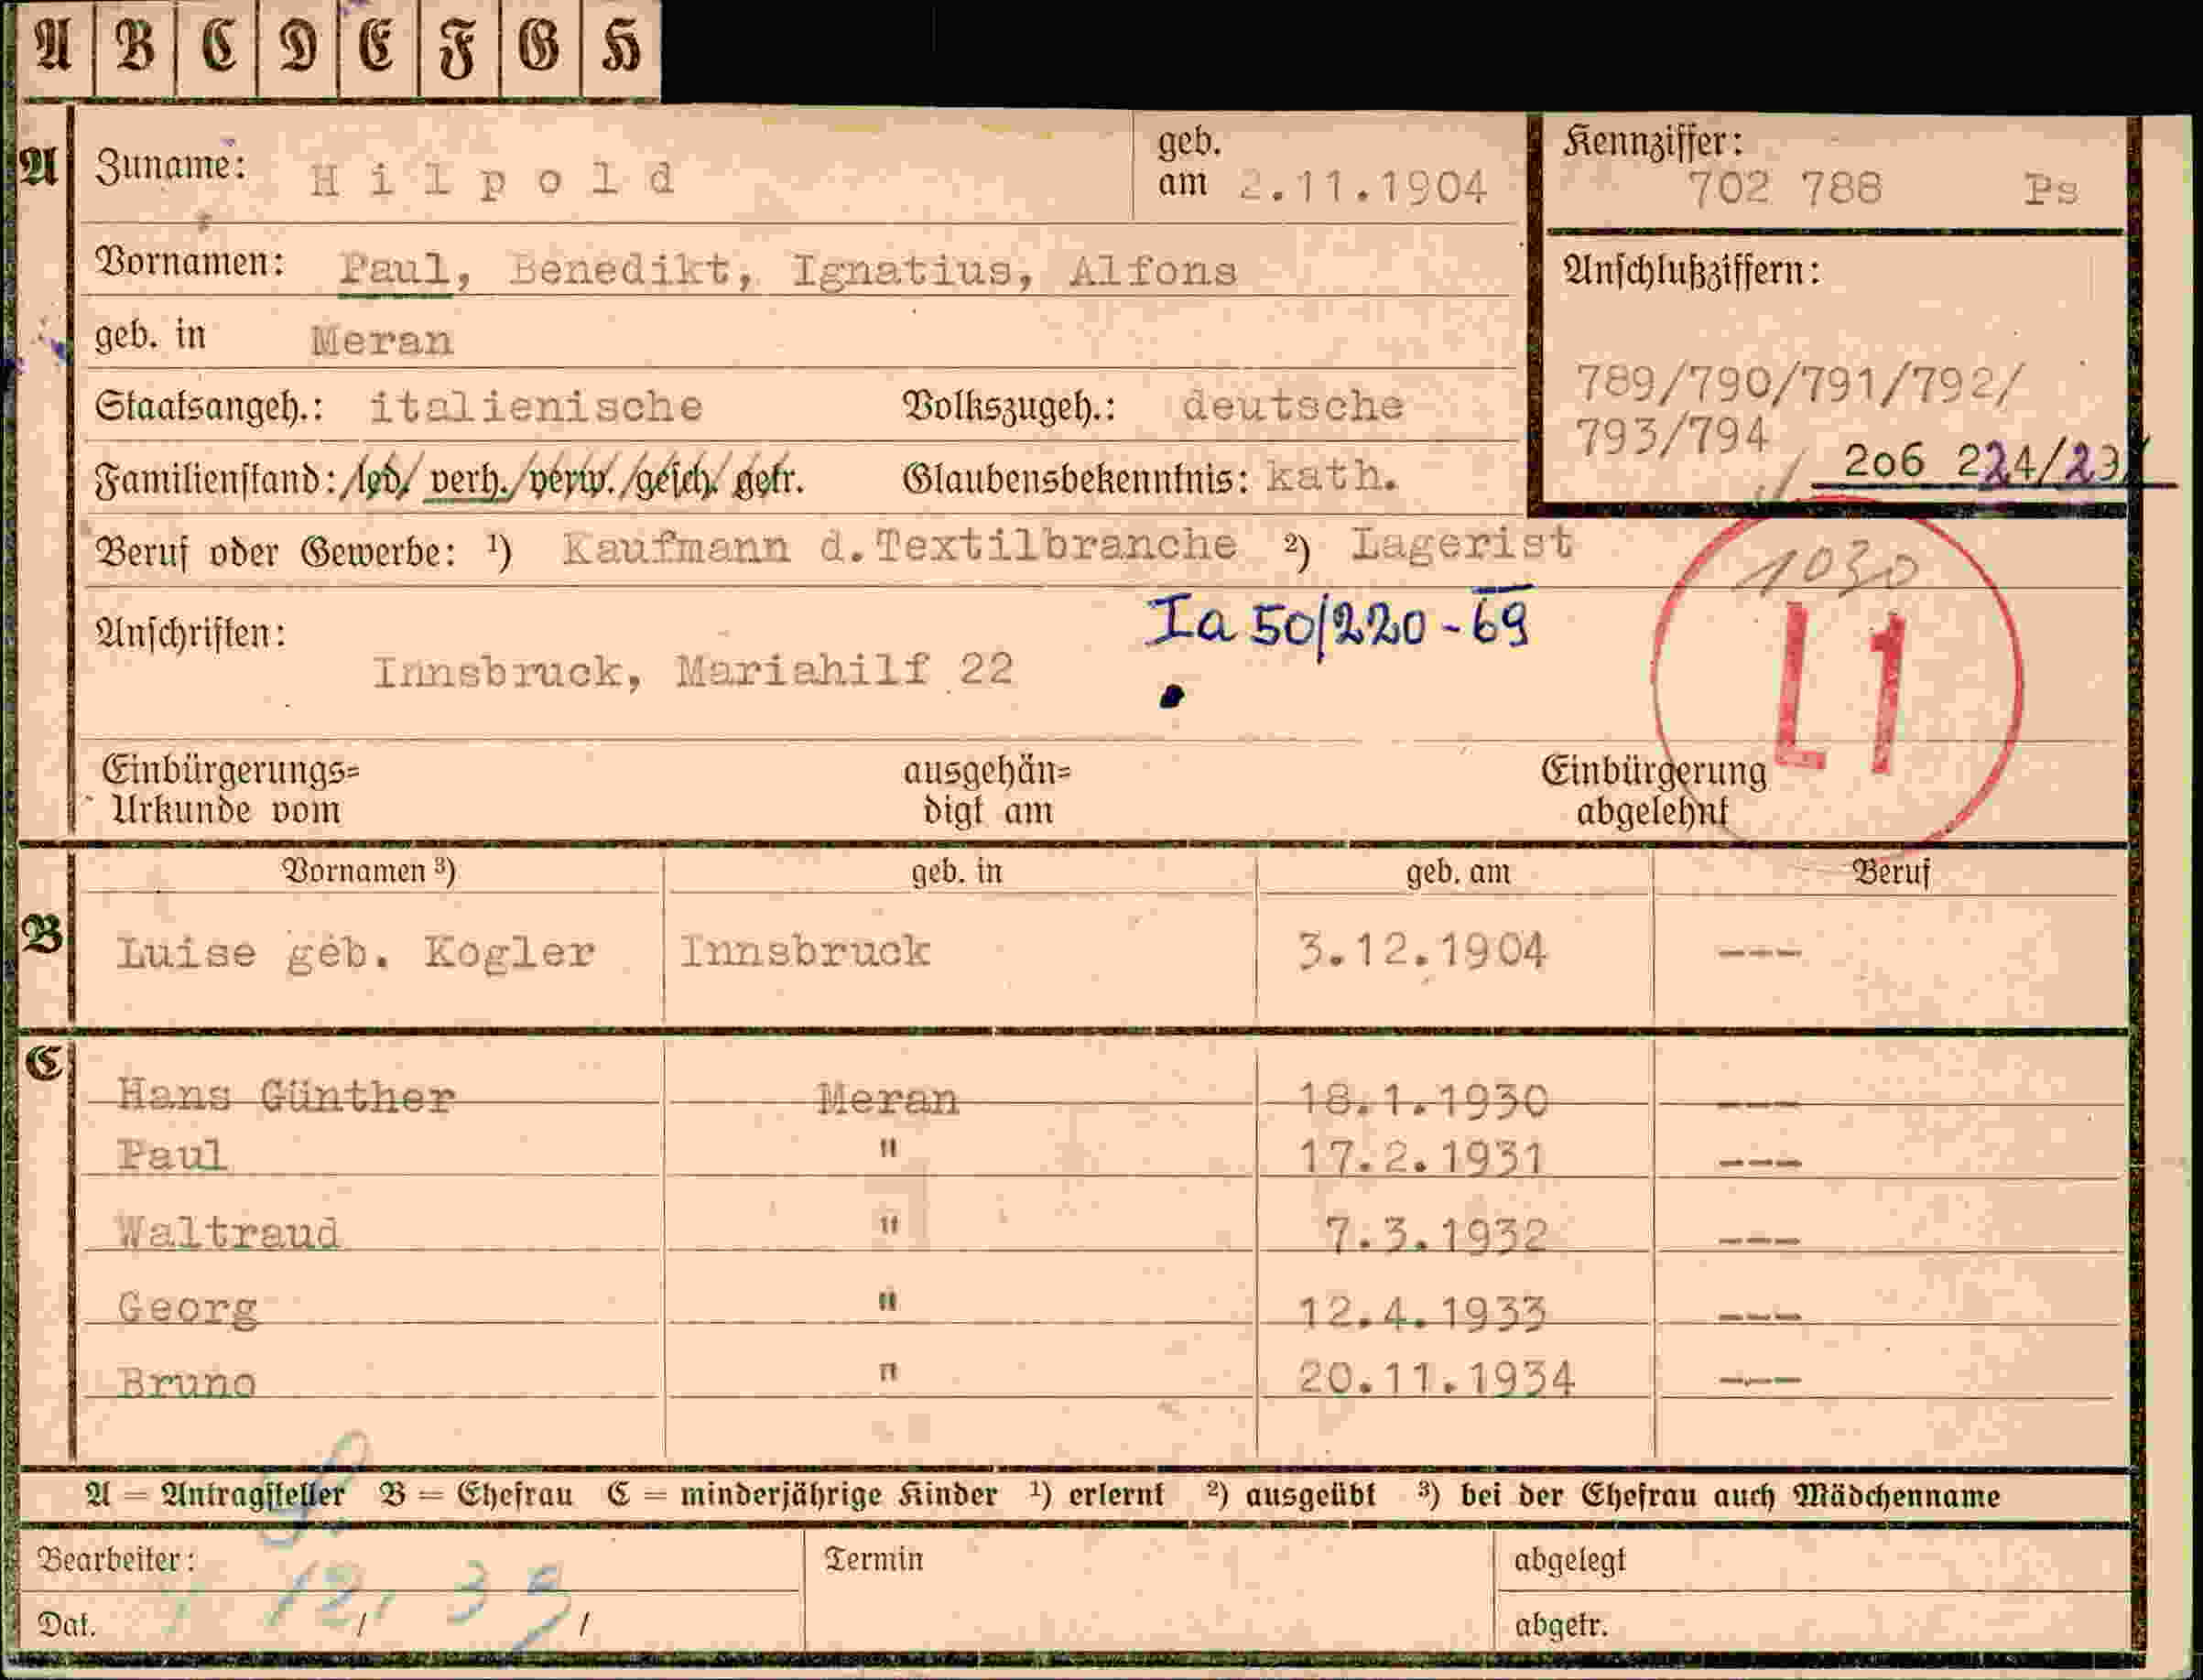 A B C D E F G H
A Zuname: Hilpold geb. am 2.11.1904
Kennziffer: 702 788 Ps
Vornamen: Paul, Benedikt, Ignatius, Alfons
Anschlußziffern:
geb. in Meran
789/790/791/792/
793/794
206 224/23
Staatsangeh.: italienische Volkszugeh.: deutsche
Familienstand: /led/ verh./verw./gesch/ getr. Glaubensbekenntnis: kath.
Beruf oder Gewerbe: ¹) Kaufmann d.Textilbranche ²) Lagerist
1030
L1
Anschriften: Ia 50/220-69
Innsbruck, Mariahilf 22
Einbürgerungs= ausgehän= Einbürgerung
Urkunde vom digt am abgelehnt
Vornamen ³) geb. in geb. am Beruf
B Luise geb. Kogler Innsbruck 3.12.1904 ---
C Hans Günther Meran 18.1.1930 ---
Paul " 17.2.1931 ---
Waltraud " 7.3.1932 ---
Georg " 12.4.1933 ---
Bruno " 20.11.1934 ---
A = Antragsteller B = Ehefrau C = minderjährige Kinder ¹) erlernt ²) ausgeübt ³) bei der Ehefrau auch Mädchenname
Bearbeiter: Termin abgelegt
Dat. / / abgetr.